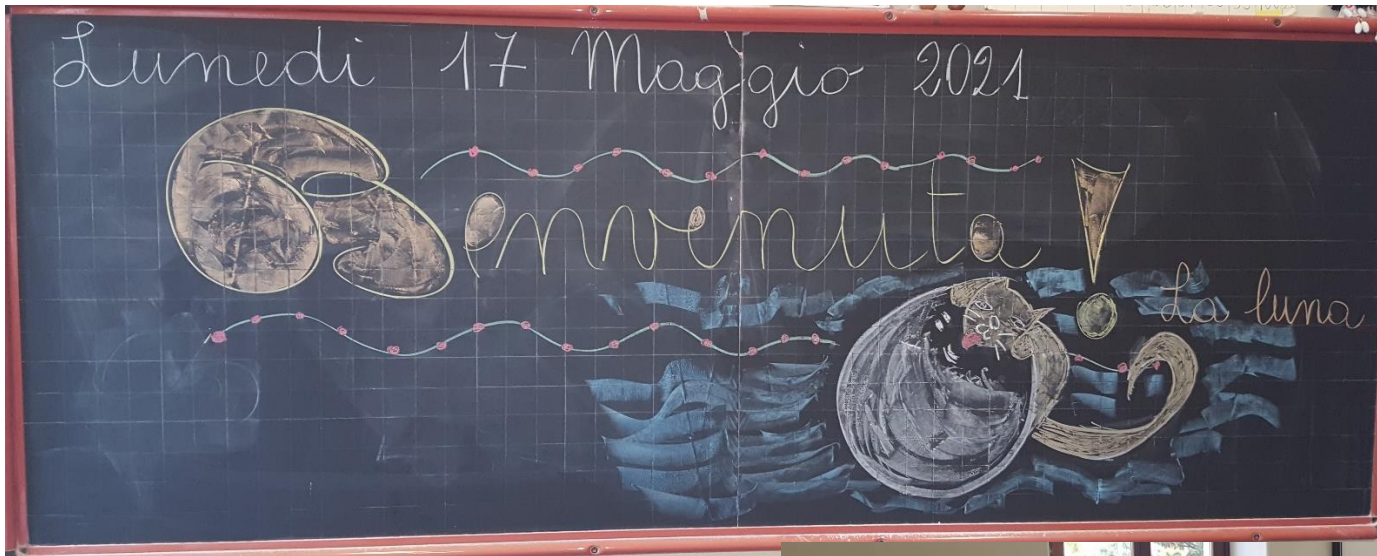 Lunedi 17 Maggio 2021
Benvenuta!
La luna